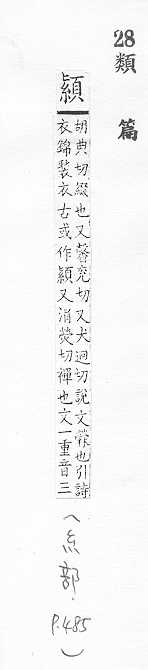 28
類篇
顈
胡典切綴也又馨兖切又犬迥切說文檾也引詩
衣錦褧衣古或作顈又涓熒切襌也文一重音三
(糸部. P.485)